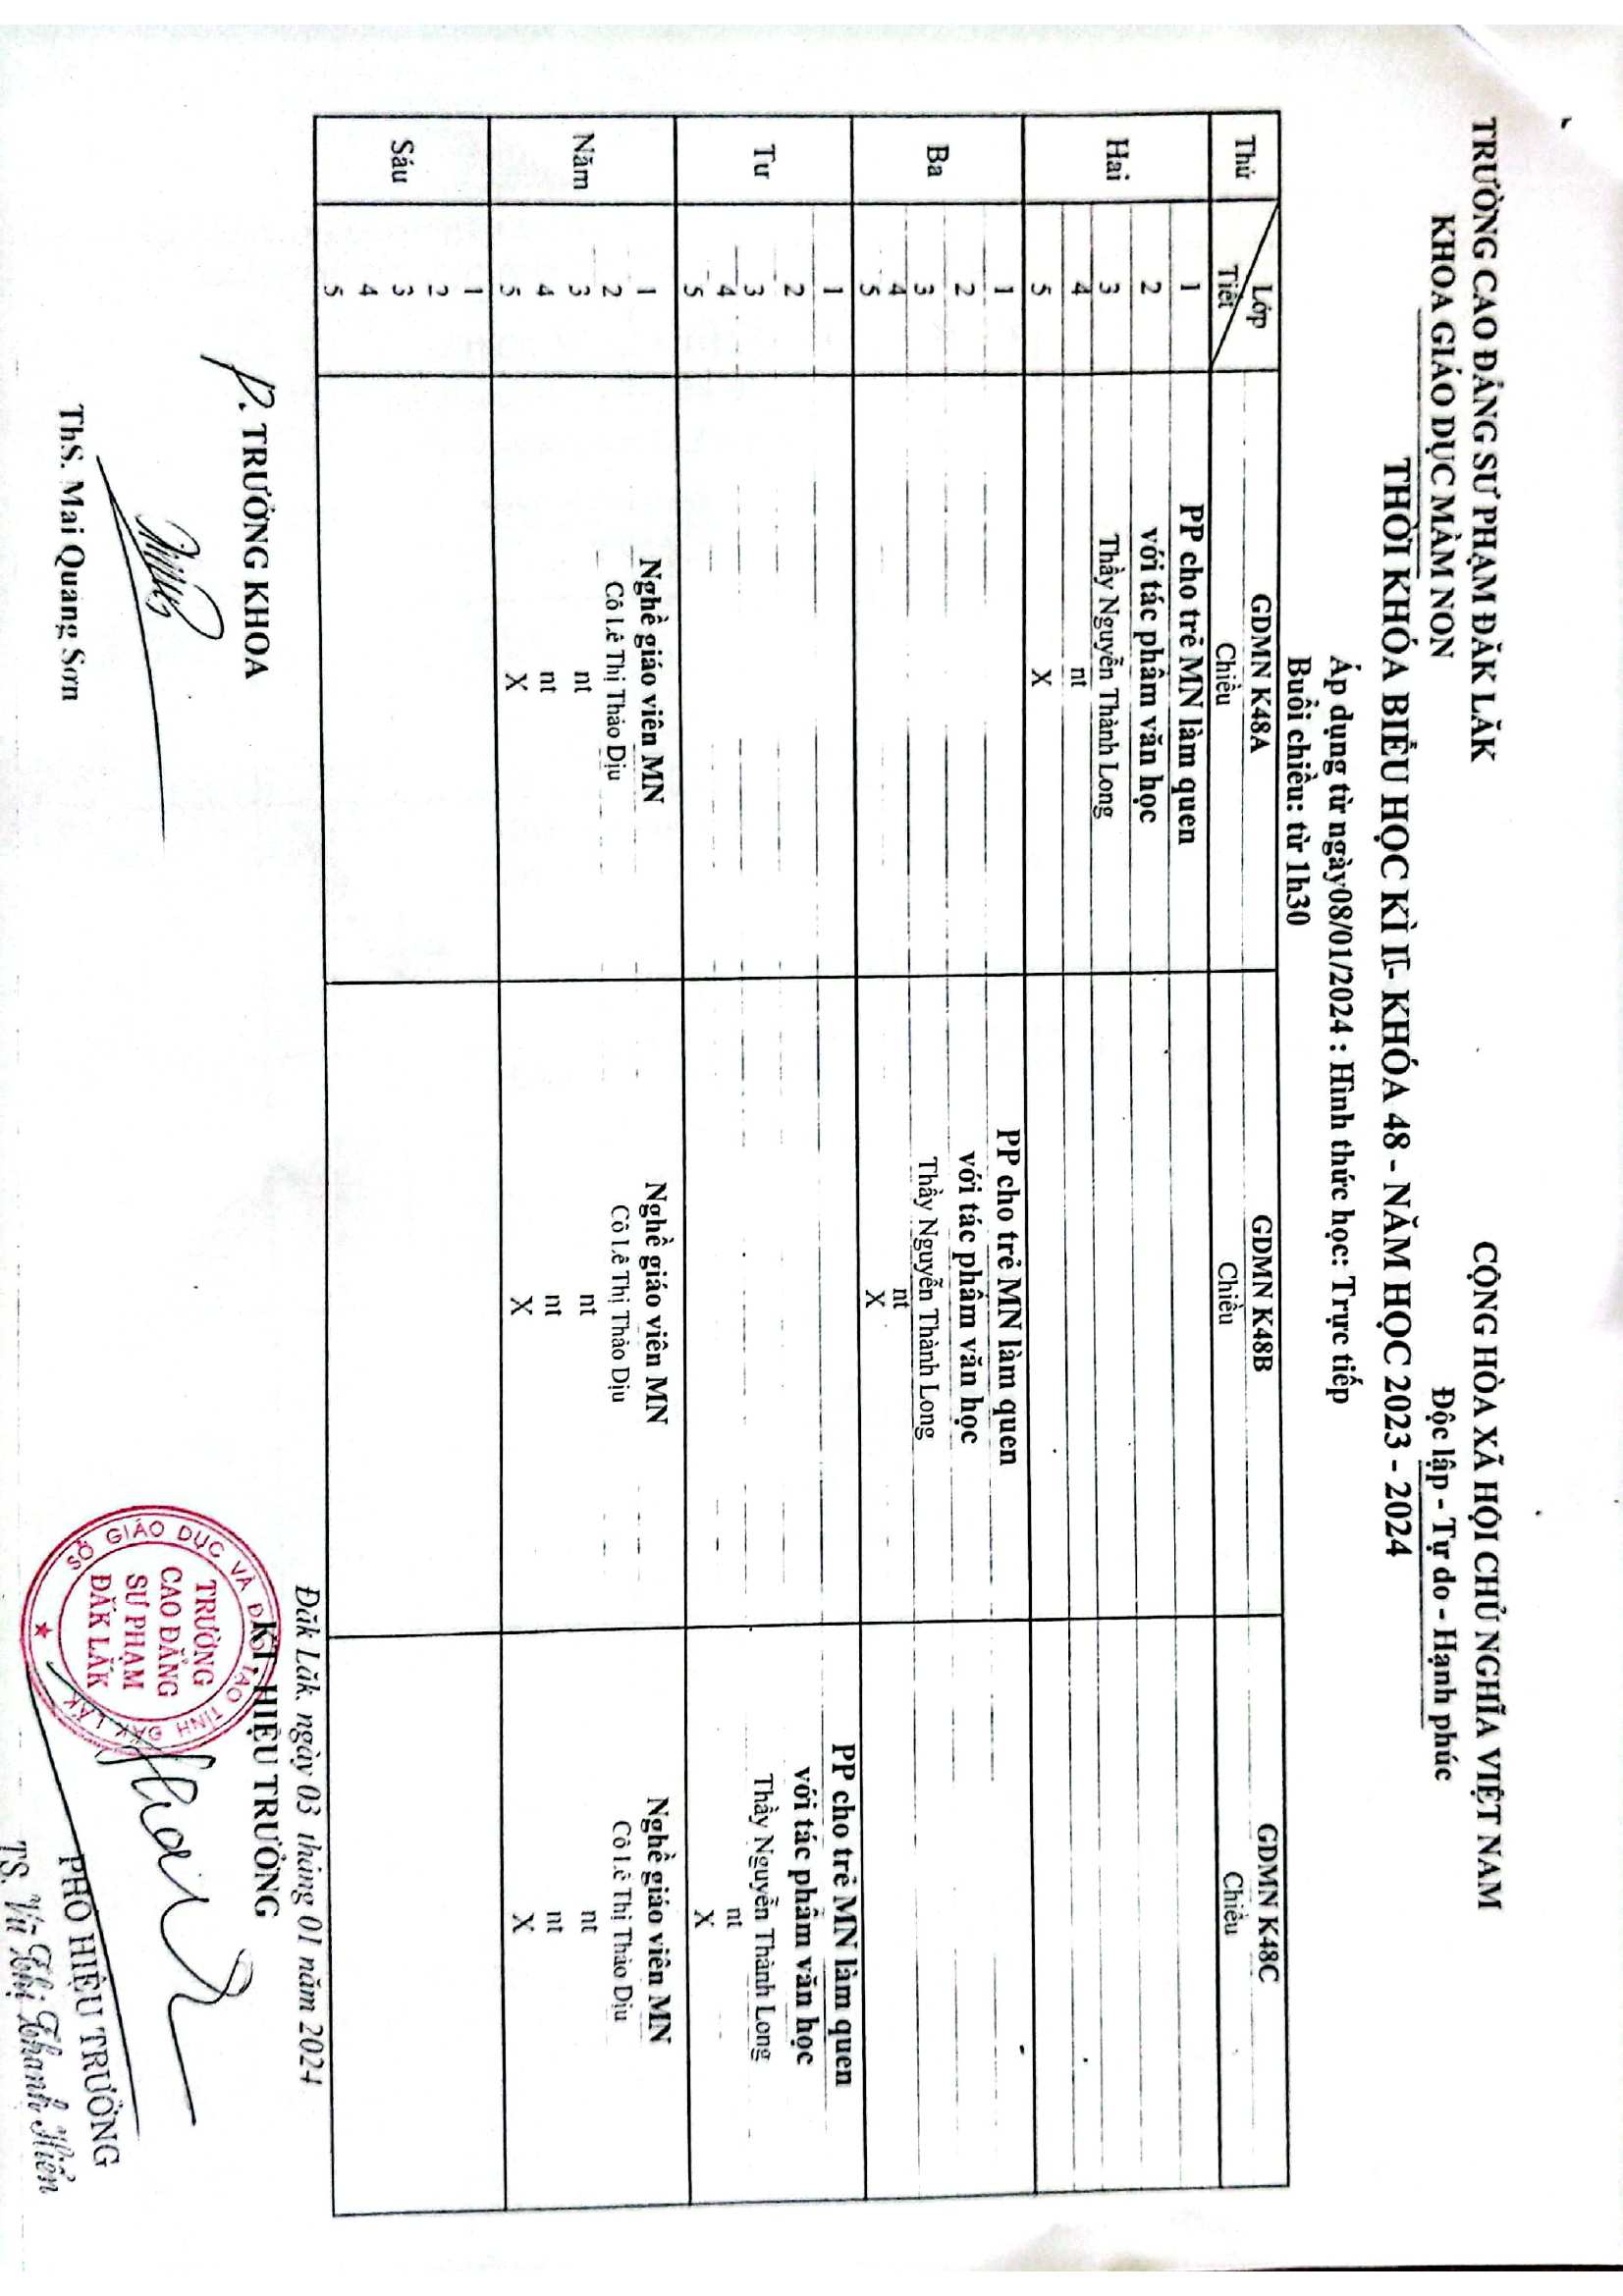 TRƯỜNG CAO ĐẲNG SƯ PHẠM ĐĂK LĂK
KHOA GIÁO DỤC MẦM NON
CỘNG HÒA XÃ HỘI CHỦ NGHĨA VIỆT NAM
Độc lập - Tự do - Hạnh phúc
THỜI KHÓA BIỂU HỌC KÌ II- KHÓA 48 - NĂM HỌC 2023 - 2024
Áp dụng từ ngày08/01/2024 : Hình thức học: Trực tiếp
Buổi chiều: từ 1h30
Thứ Lớp GDMN K48A GDMN K48B GDMN K48C
Tiết Chiều Chiều Chiều
Hai
1 PP cho trẻ MN làm quen
2 với tác phẩm văn học
3 Thầy Nguyễn Thành Long
4 nt
5 X
Ba
1 PP cho trẻ MN làm quen
2 với tác phẩm văn học
3 Thầy Nguyễn Thành Long
4 nt
5 X
Tư
1 PP cho trẻ MN làm quen
2 với tác phẩm văn học
3 Thầy Nguyễn Thành Long
4 nt
5 X
Năm
1 Nghề giáo viên MN Nghề giáo viên MN Nghề giáo viên MN
2 Cô Lê Thị Thảo Dịu Cô Lê Thị Thảo Dịu Cô Lê Thị Thảo Dịu
3 nt nt nt
4 nt nt nt
5 X X X
Sáu
1
2
3
4
5
Đăk Lăk. ngày 03 tháng 01 năm 2024
P. TRƯỞNG KHOA
KT. HIỆU TRƯỞNG
SỞ GIÁO DỤC VÀ ĐÀO TẠO TỈNH ĐẮK LẮK
TRƯỜNG
CAO ĐẲNG
SƯ PHẠM
ĐẮK LẮK
PHÓ HIỆU TRƯỞNG
ThS. Mai Quang Sơn
TS. Vũ Thị Thanh Hiền